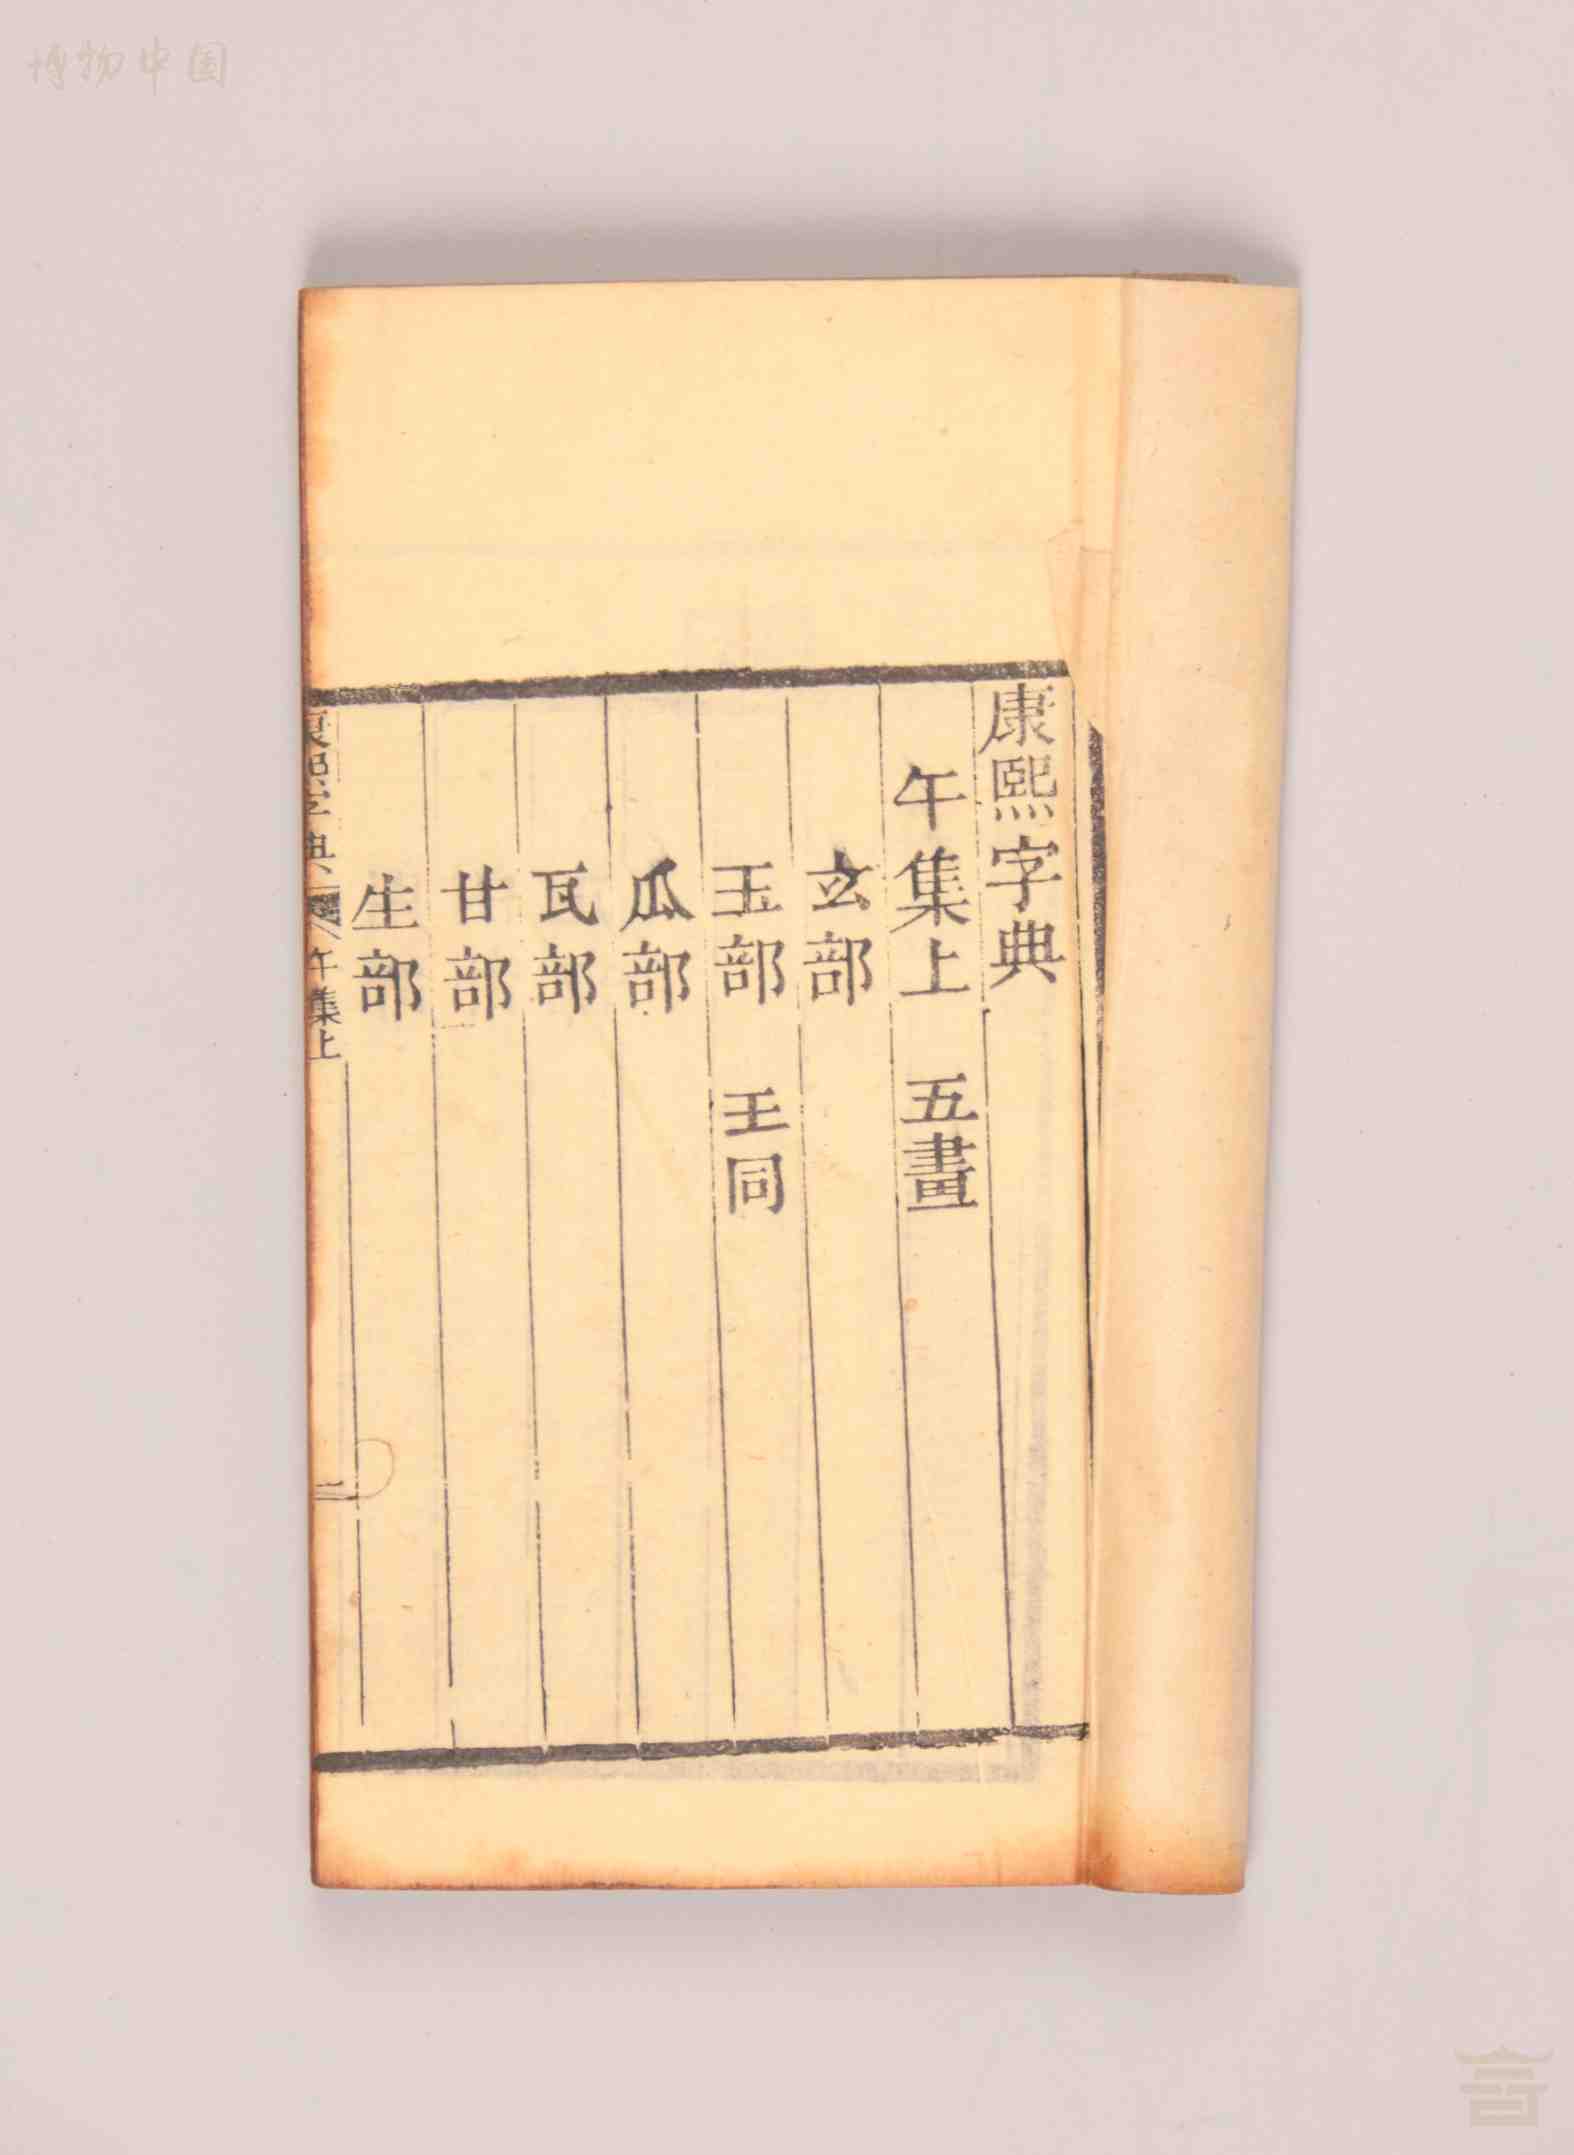 康熙字典
午集上 五畫
玄部
玉部 王同
瓜部
瓦部
甘部
生部
康熙字典 午集上 一
博物中国